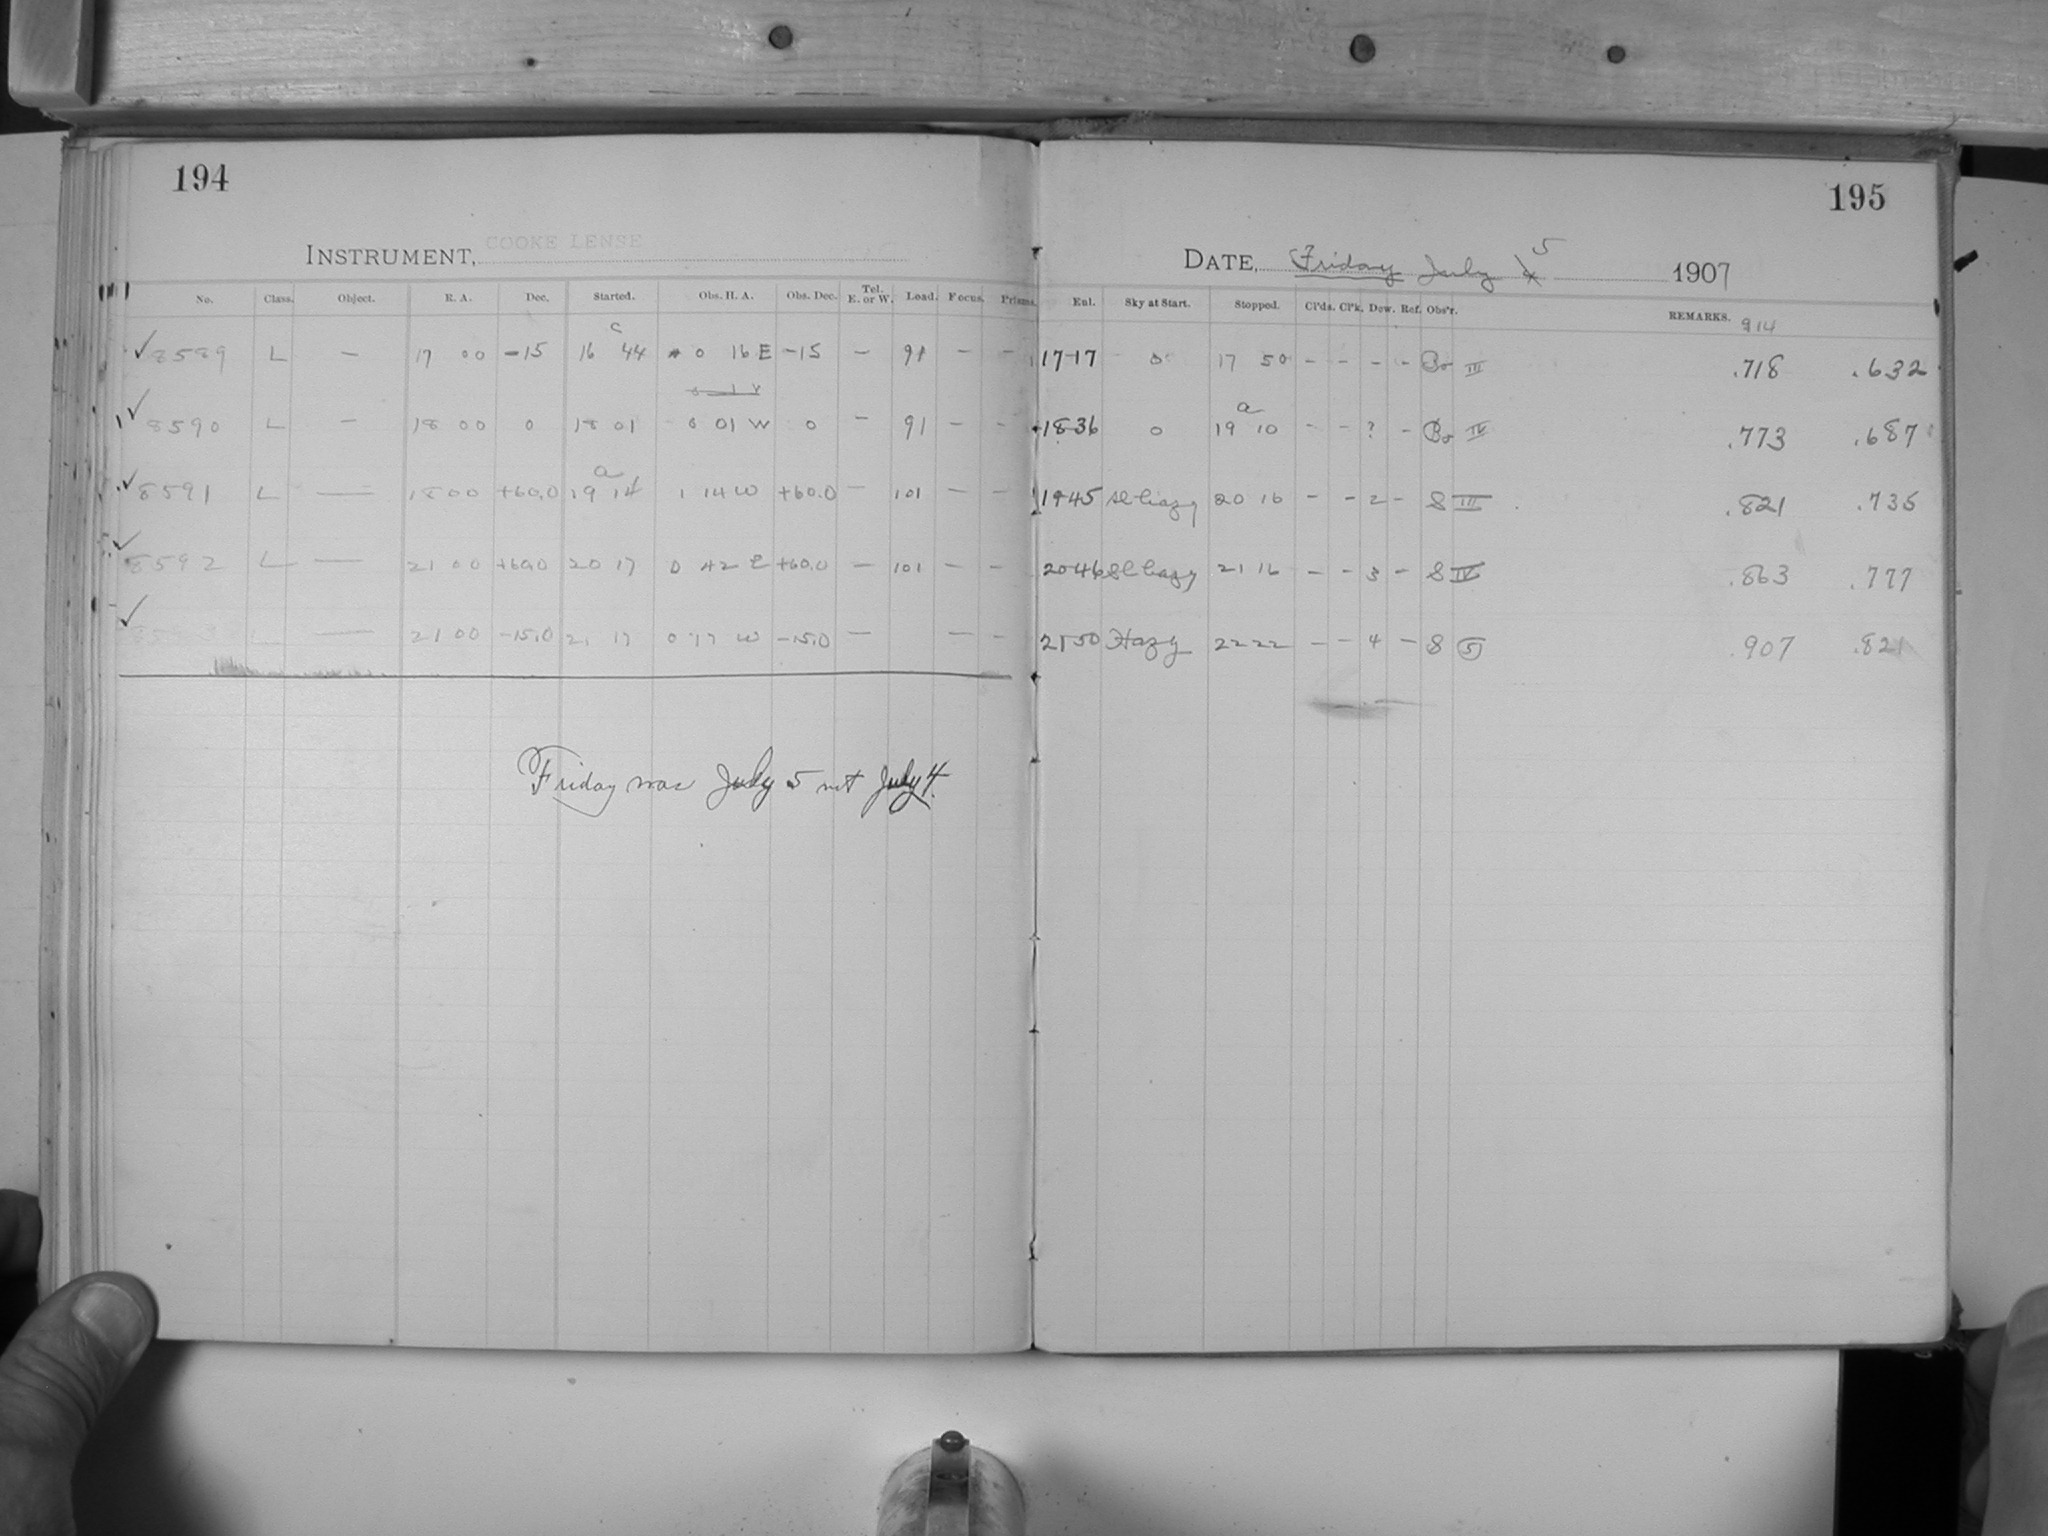 194
195
INSTRUMENT, COOKE LENSE
DATE, Friday July 4 5 1907
No. Class. Object. R. A. Dec. Started. Obs. H. A. Obs. Dec. Tel. E. or W. Load. Focus. Prisms. Ent. Sky at Start. Stopped. Cl'ds. Cl'k. Dew. Ref. Obs'r. REMARKS. 914
✓ 8589 L — 17 00 -15 16 44 c 0 16 E -15 — 91 — — 17 17 0 17 50 - - - - Bo III .718 .632
✓ 8590 L — 18 00 0 18 01 0 01 W 0 — 91 — — 18 36 0 19 10 a - - ? - Bo IV .773 .687
✓ 8591 L — 18 00 +60.0 19 14 a 1 14 W +60.0 — 101 — — 19 45 Sl hazy 20 16 - - 2 - S III .821 .735
✓ 8592 L — 21 00 +60.0 20 17 0 42 E +60.0 — 101 — — 20 46 Sl hazy 21 16 - - 3 - S IV .863 .777
✓ L — 21 00 -15.0 21 17 0 17 W -15.0 — — — 21 50 Hazy 22 22 — - 4 - S 5 .907 .821
Friday was July 5 not July 4.